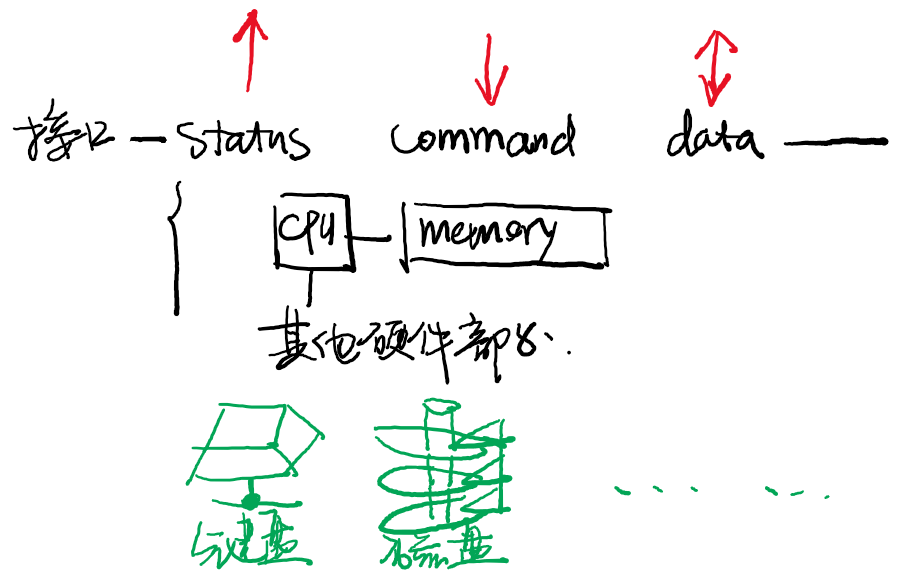 接口 — status command data
CPU memory
其他硬件部分.
键盘 磁盘